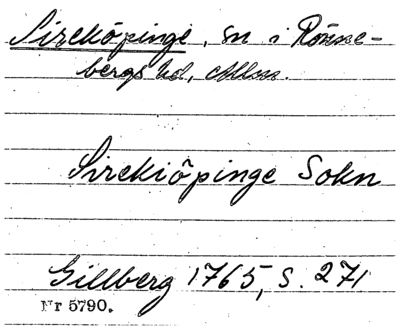 Sireköpinge, sn i Rönne-
bergs hd, Mlms.
Sirekiöpinge Sokn
Gillberg 1765, S. 271
Nr 5790.